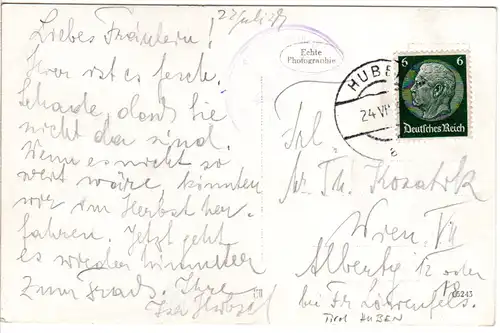 22 Juli 39
Liebes Fräulein!
ist es fesch.
Schade, dass Sie
nicht da sind.
Wenn es nicht so
weit wäre, könnten
wir im Herbst her-
fahren. Jetzt geht
es wieder hinunter
zum Ihre
Echte
Photographie
HUBE
24. VII
a
6 6
Deutsches Reich
Frl.
Th. Kozatsk
Wien VII
12 oder
bei Fr.
05243
Tirol HUBEN